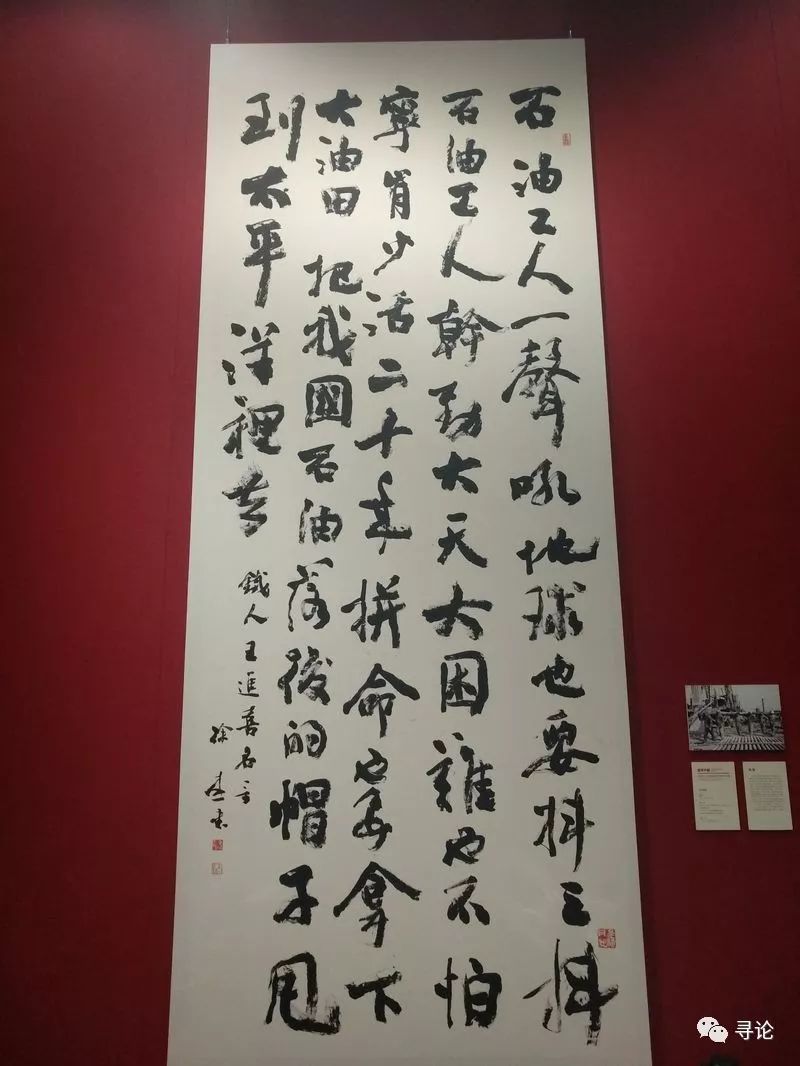 石油工人一聲吼地球也要抖三抖
石油工人幹勁大天大困難也不怕
寧肯少活二十年拼命也要拿下
大油田 把我國石油落後的帽子甩
到太平洋裡去
鐵人王進喜名言
徐 書
寻论